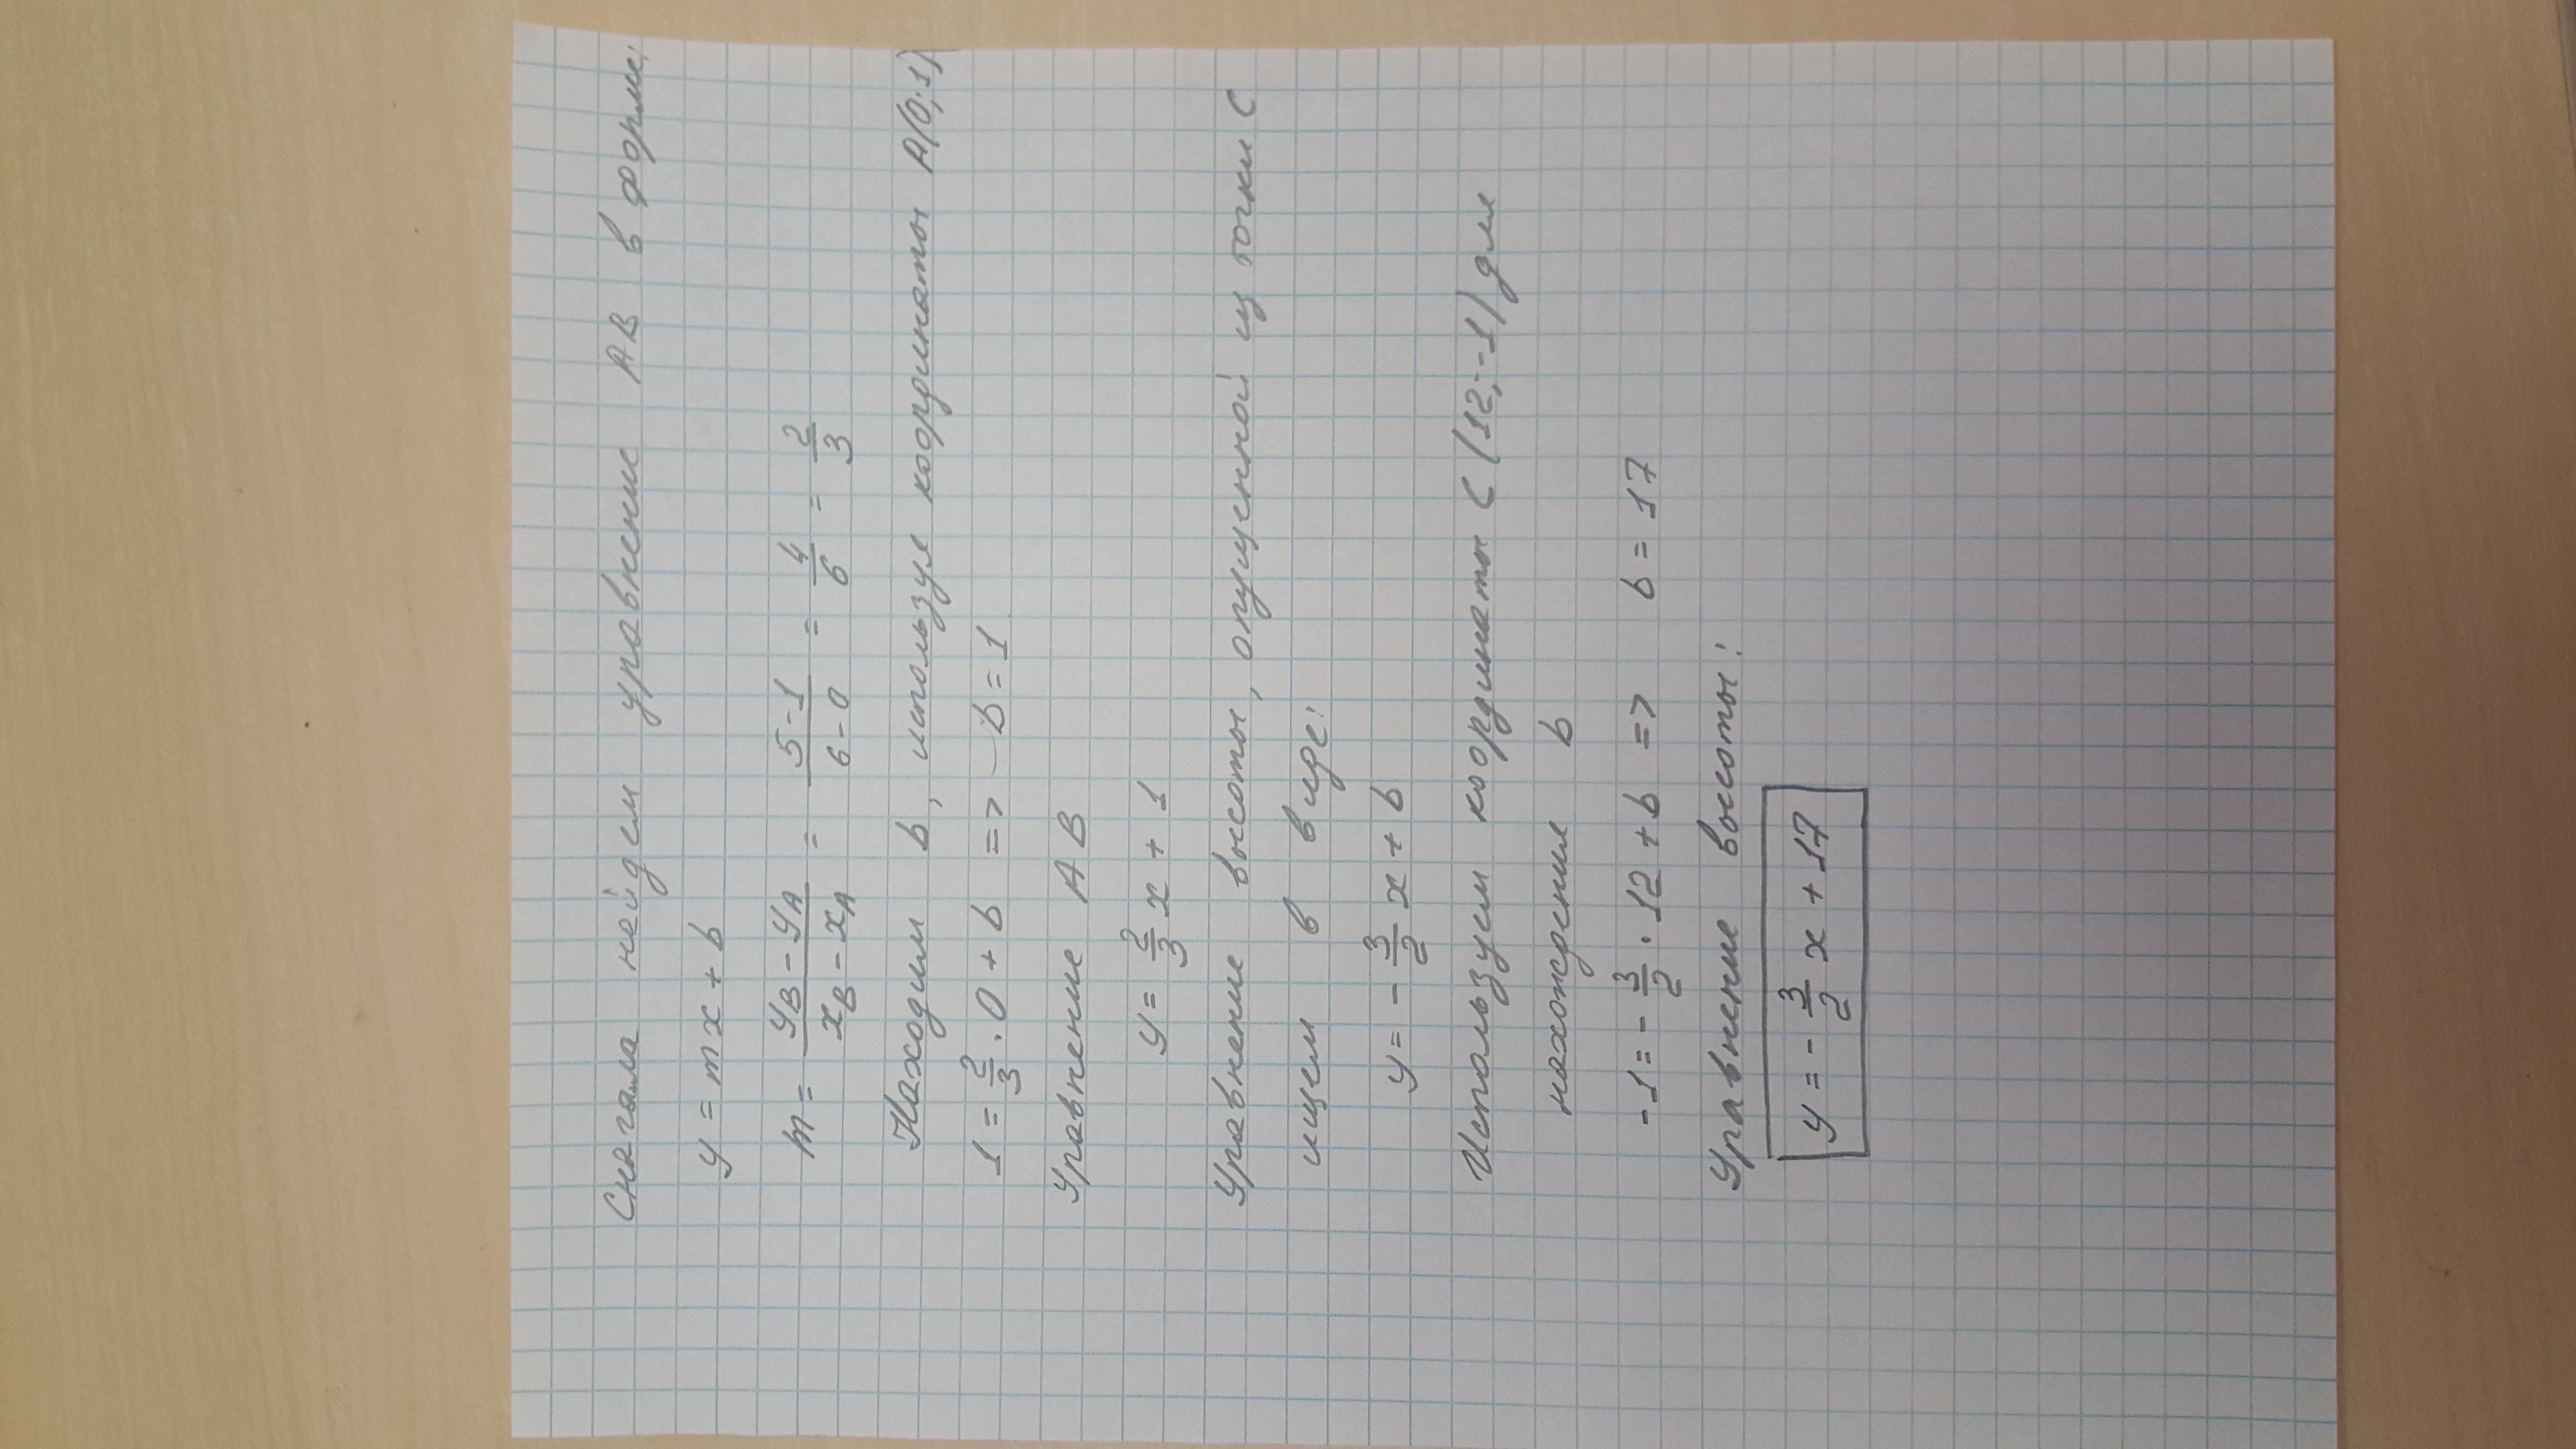 Сначала найдем уравнение AB в форме:
y = mx + b
m = \frac{y_B - y_A}{x_B - x_A} = \frac{5-1}{6-0} = \frac{4}{6} = \frac{2}{3}
Находим b, используя координаты A(0;1)
1 = \frac{2}{3} · 0 + b => b = 1
Уравнение AB
y = \frac{2}{3} x + 1
Уравнение высоты, опущенной из точки C
ищем в виде:
y = - \frac{3}{2} x + b
Используем координаты C (12; -1) для
нахождения b
-1 = - \frac{3}{2} · 12 + b => b = 17
Уравнение высоты:
y = - \frac{3}{2} x + 17